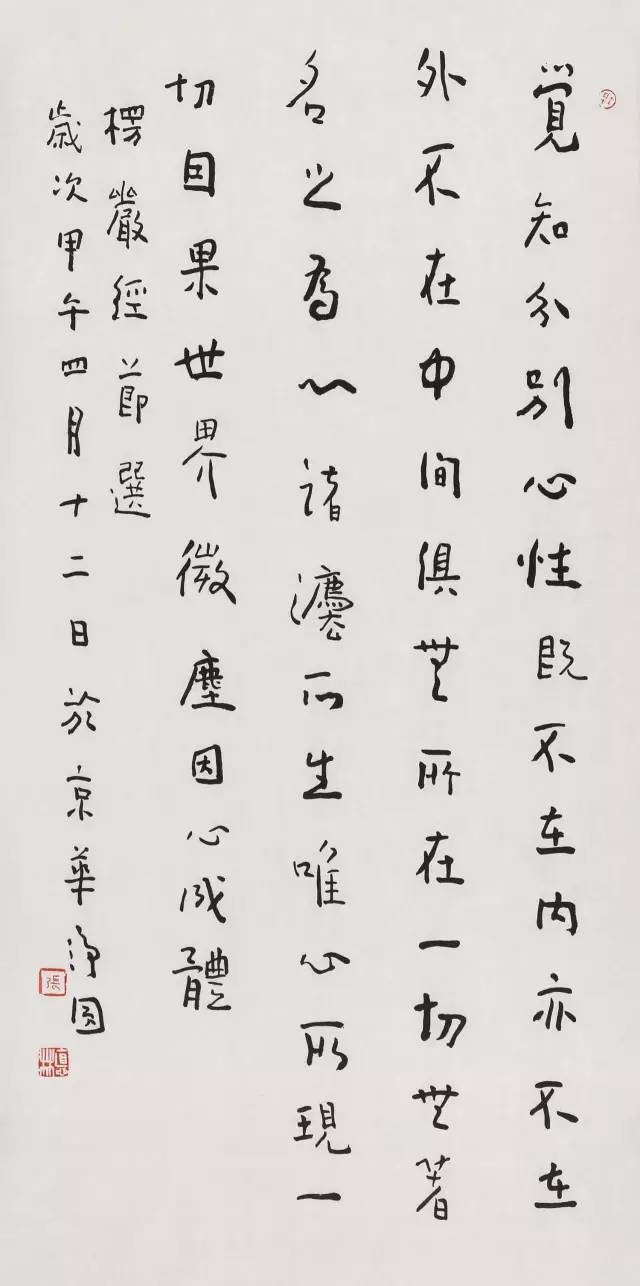 覺知分別心性既不在內亦不在
外不在中間俱無所在一切無著
名之為心諸灋所生唯心所現一
切因果世界微塵因心成體
楞嚴經節選
歲次甲午四月十二日於京華淨園
張